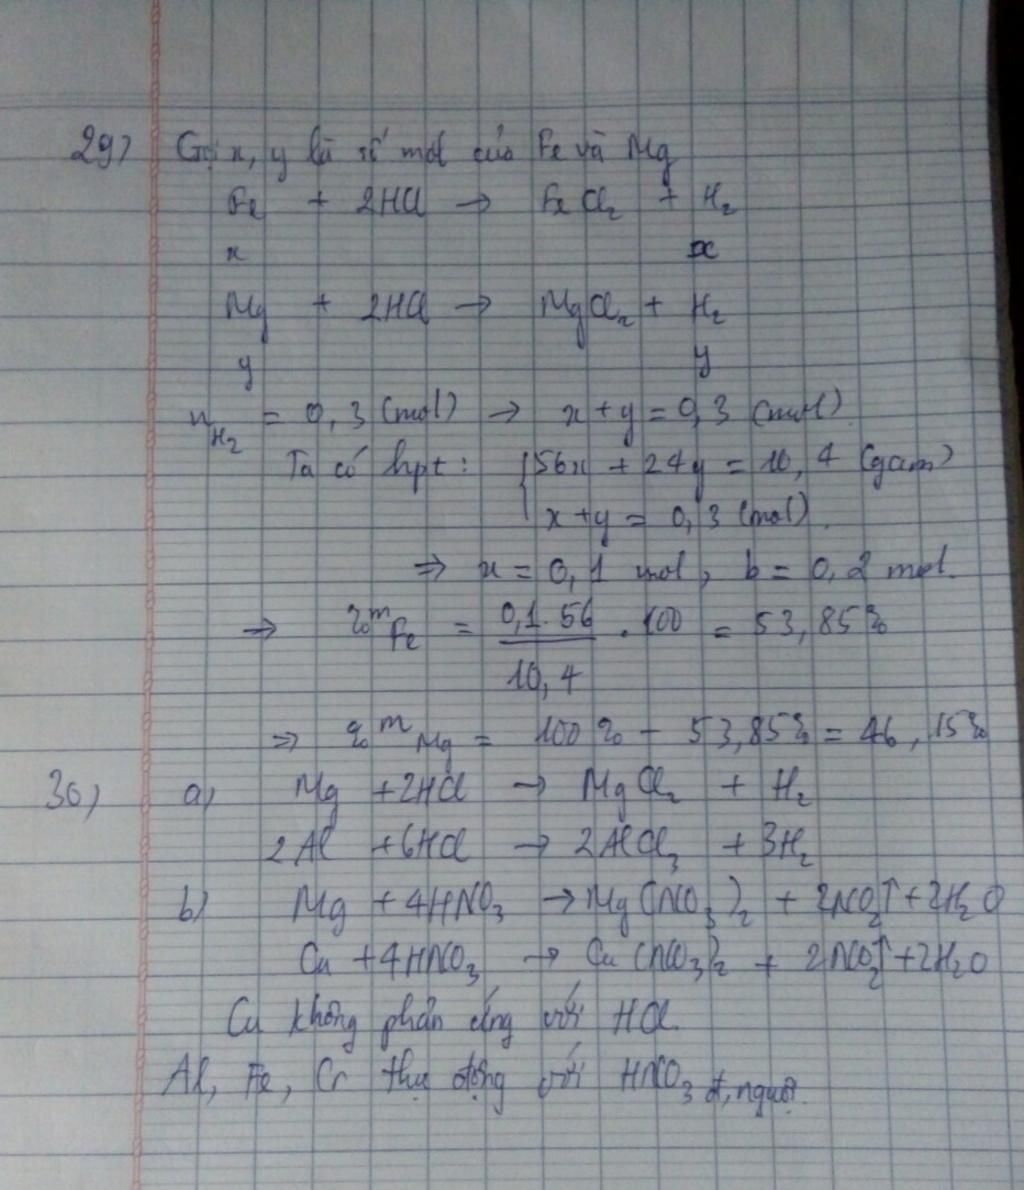 29) Gọi x, y là số mol của Fe và Mg
Fe + 2HCl → FeCl₂ + H₂
x x
Mg + 2HCl → MgCl₂ + H₂
y y
nH₂ = 0,3 (mol) → x + y = 0,3 (mol)
Ta có hpt: { 56x + 24y = 10,4 (gam)
x + y = 0,3 (mol).
⇒ x = 0,1 mol, b = 0,2 mol.
⇒ %mFe = 0,1.56 / 10,4 . 100 = 53,85%
⇒ %mMg = 100% - 53,85% = 46,15%
30) a) Mg + 2HCl → MgCl₂ + H₂
2Al + 6HCl → 2AlCl₃ + 3H₂
b) Mg + 4HNO₃ → Mg(NO₃)₂ + 2NO₂↑ + 2H₂O
Cu + 4HNO₃ → Cu(NO₃)₂ + 2NO₂↑ + 2H₂O
Cu không phản ứng với HCl.
Al, Fe, Cr thụ động với HNO₃ đ, nguội.